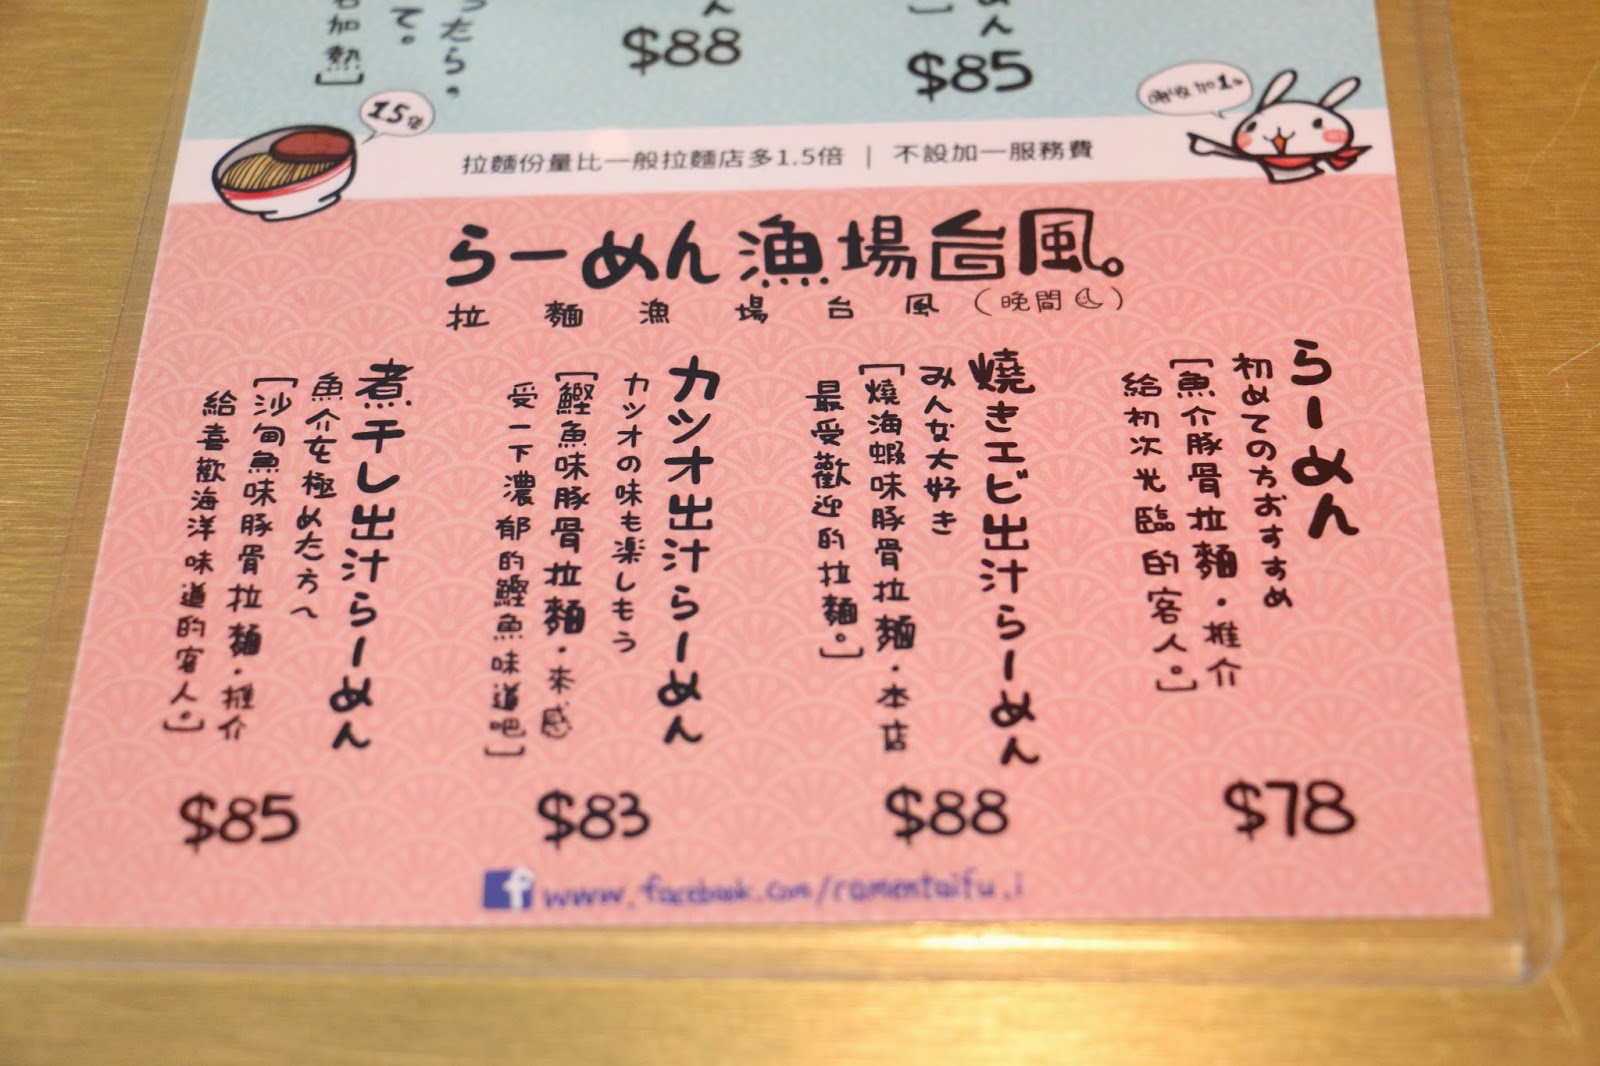 て。
ったら。
加熱]
ん
$88
めん
$85
1.5倍
拉麵份量比一般拉麵店多1.5倍 | 不設加一服務費
らーめん漁場台風。
拉麵漁場台風(晚間)
らーめん
初めての方おすすめ
[魚介豚骨拉麵・推介
給初次光臨的客人。]
$78
燒きエビ出汁らーめん
みんな大好き
[燒海蝦味豚骨拉麵・本店
最受歡迎的拉麵。]
$88
カツオ出汁らーめん
カツオの味も楽しもう
[鰹魚味豚骨拉麵・來感
受一下濃郁的鰹魚味道吧]
$83
煮干し出汁らーめん
魚介を極めた方へ
[沙甸魚味豚骨拉麵・推介
給喜歡海洋味道的客人。]
$85
www.facebook.com/ramentaifu.i